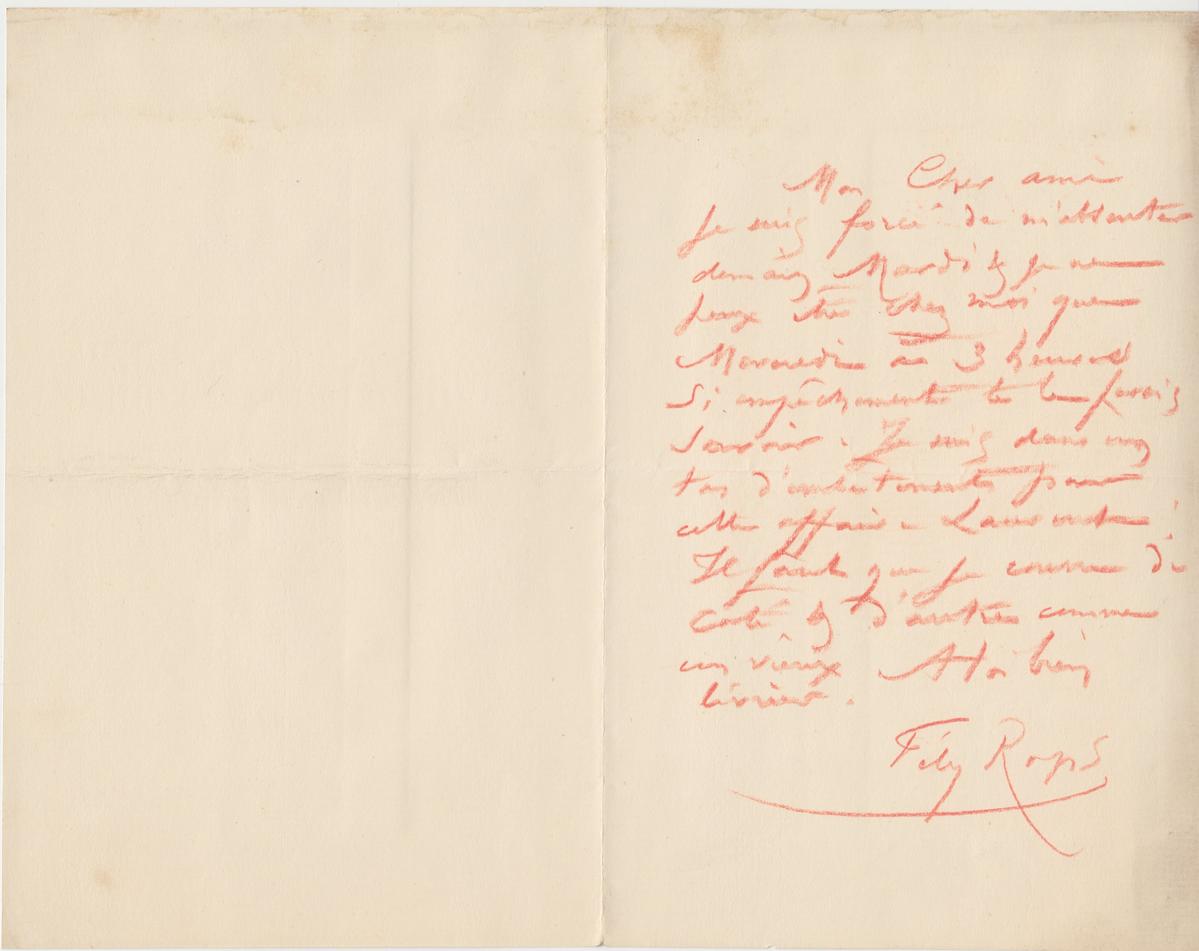 Mon Cher ami
Je suis forcé de m'absenter
demain Mardi & je ne
peux être chez moi que
Mercredi à 3 heures
Si empêchements te le ferais
savoir. Je suis dans un
tas d'embetements pour
cette affaire
Il faut que je courre de
coté & d'autre comme
un vieux A toi bien
lévrier.
Fély Rops